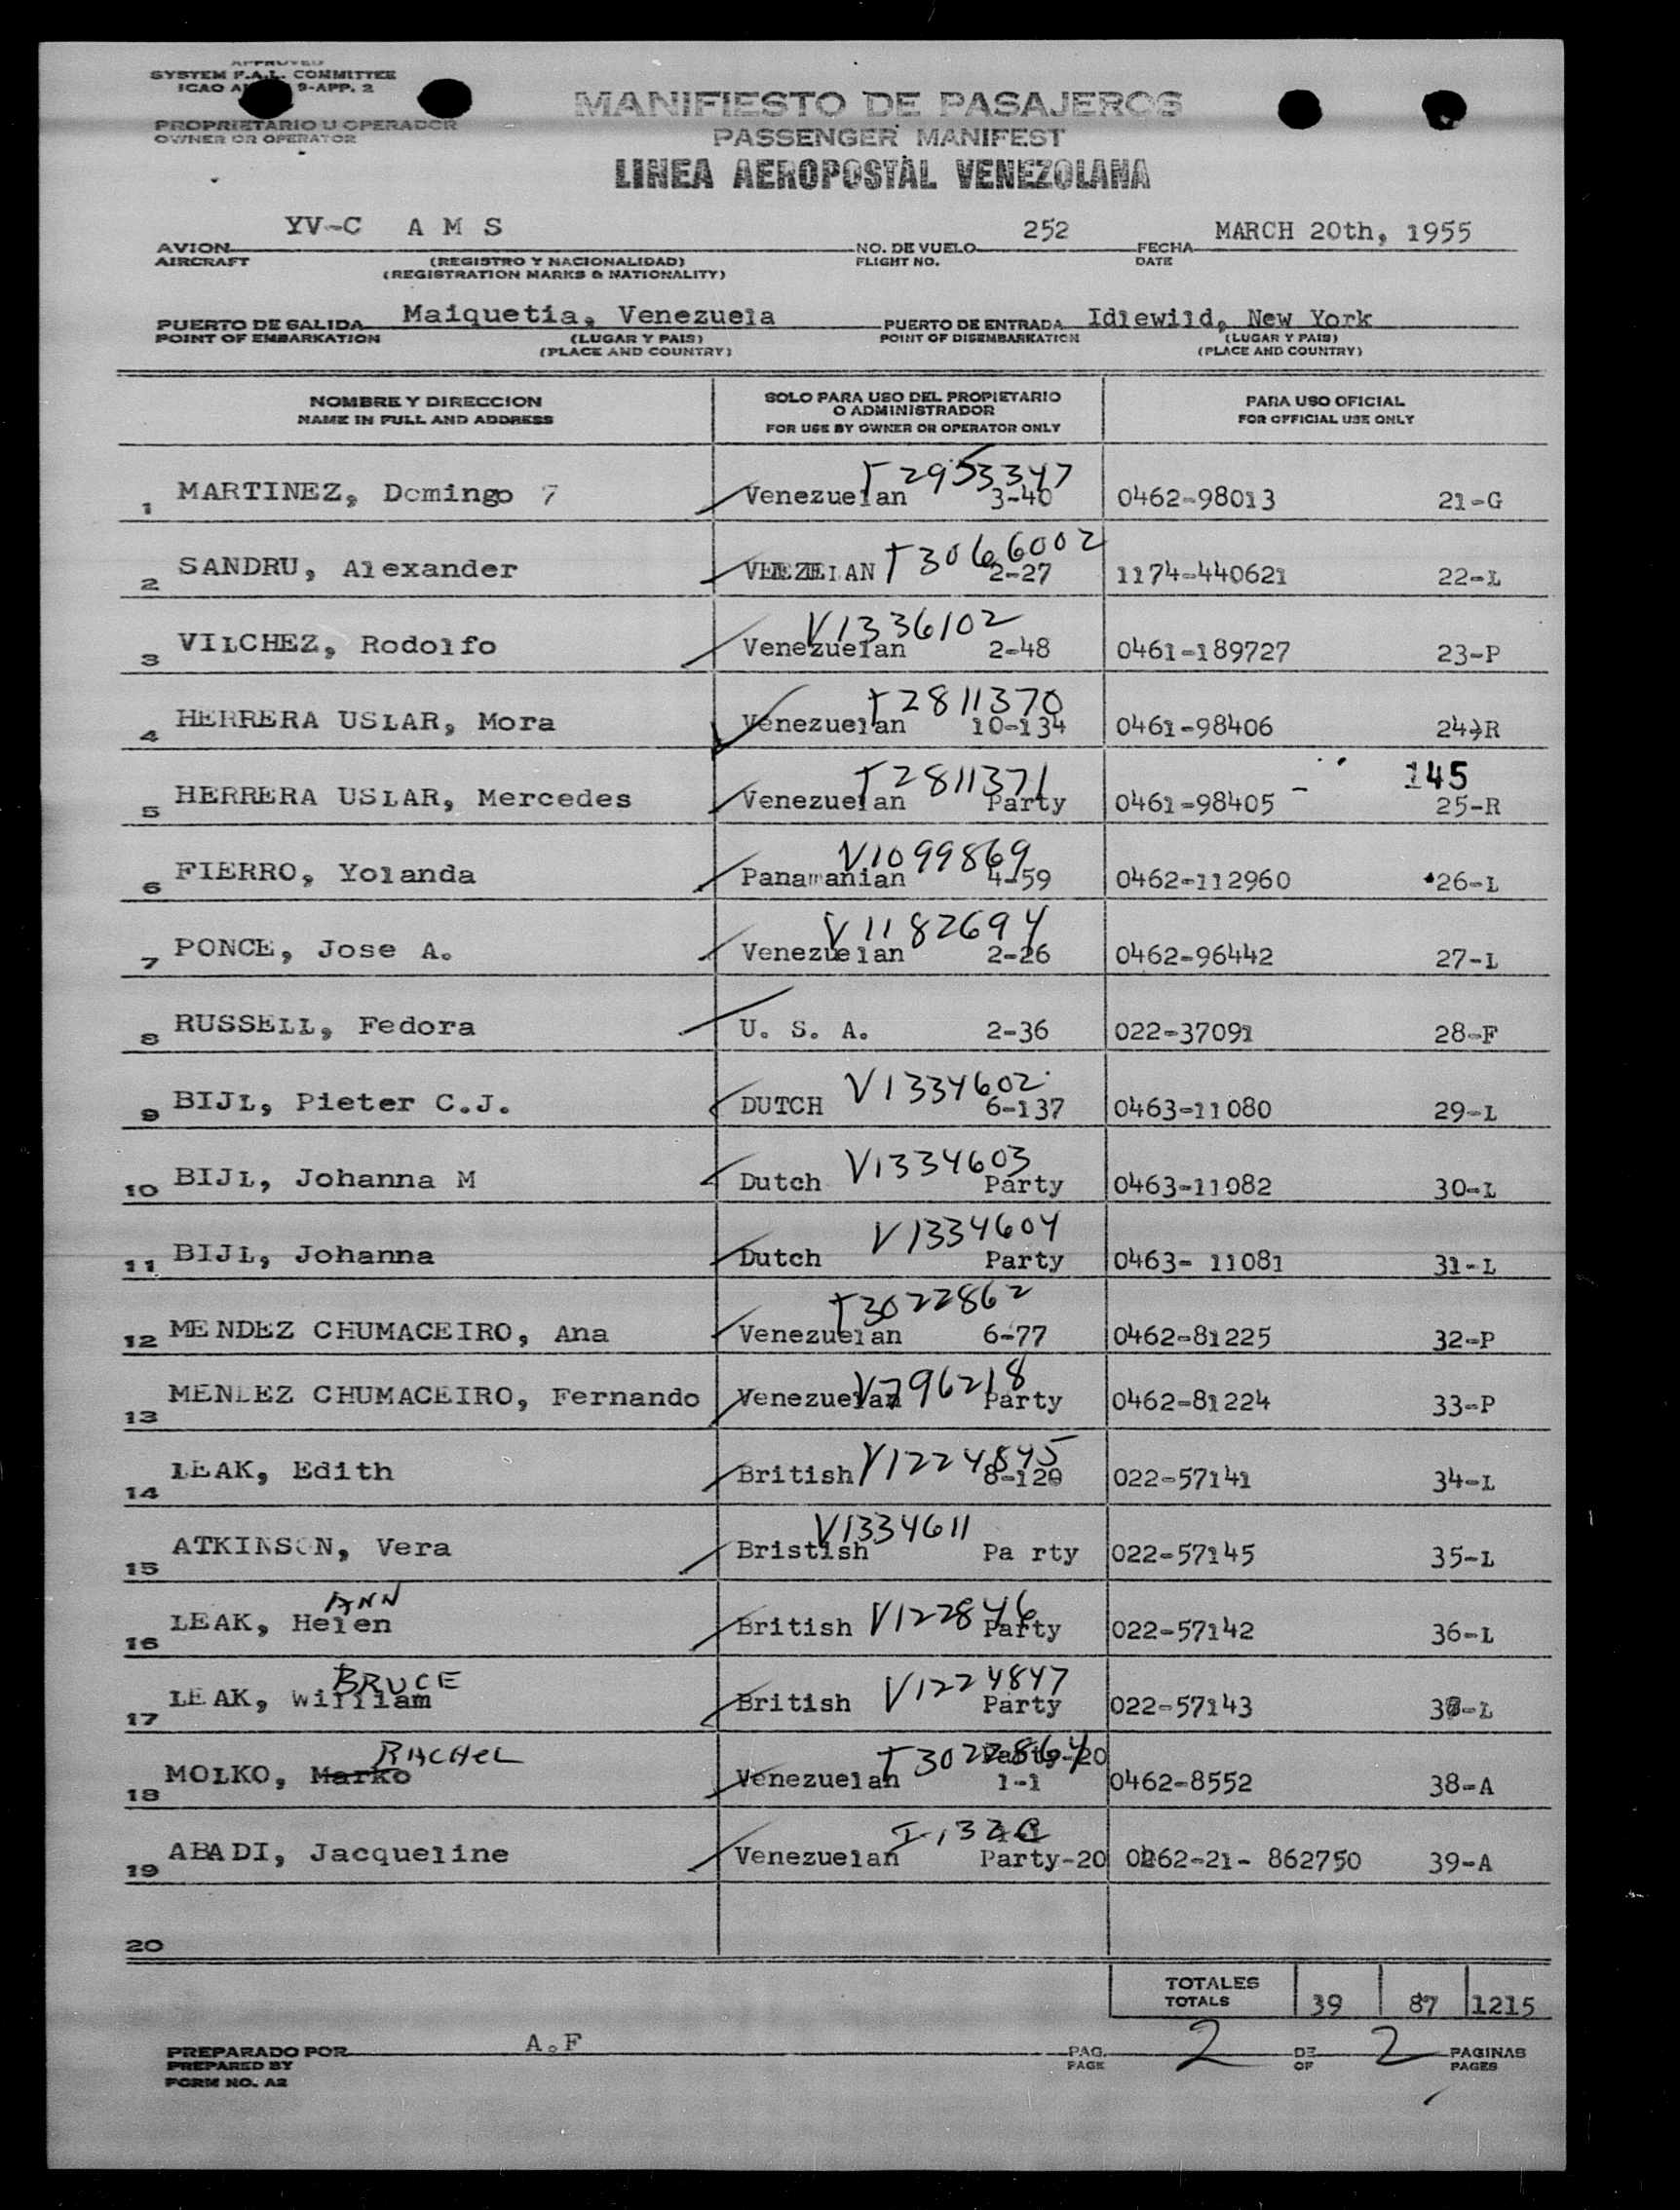 APPROVED
SYSTEM F.A.L. COMMITTEE
ICAO 9-APP. 2
PROPRIETARIO U OPERADOR
OWNER OR OPERATOR
MANIFIESTO DE PASAJEROS
PASSENGER MANIFEST
LINEA AEROPOSTAL VENEZOLANA
YV-C A M S 252 MARCH 20th, 1955
AVION NO. DE VUELO FECHA
AIRCRAFT (REGISTRO Y NACIONALIDAD) FLIGHT NO. DATE
(REGISTRATION MARKS & NATIONALITY)
Maiquetia, Venezuela Idlewild, New York
PUERTO DE SALIDA PUERTO DE ENTRADA
POINT OF EMBARKATION (LUGAR Y PAIS) POINT OF DISEMBARKATION (LUGAR Y PAIS)
(PLACE AND COUNTRY) (PLACE AND COUNTRY)
NOMBRE Y DIRECCION SOLO PARA USO DEL PROPIETARIO PARA USO OFICIAL
O ADMINISTRADOR
NAME IN FULL AND ADDRESS FOR USE BY OWNER OR OPERATOR ONLY FOR OFFICIAL USE ONLY
T2953347
1 MARTINEZ, Domingo 7 Venezuelan 3-40 0462-98013 21-G
T3066002
2 SANDRU, Alexander 2-27 1174-440621 22-L
V1336102
3 VILCHEZ, Rodolfo Venezuelan 2-48 0461-189727 23-P
T2811370
4 HERRERA USLAR, Mora Venezuelan 10-134 0461-98406 24-R
T2811371 145
5 HERRERA USLAR, Mercedes Venezuelan Party 0461-98405 25-R
V1099869
6 FIERRO, Yolanda Panamanian 4-59 0462-112960 26-L
V1182694
7 PONCE, Jose A. Venezuelan 2-26 0462-96442 27-L
8 RUSSELL, Fedora U. S. A. 2-36 022-37091 28-F
V1334602
9 BIJL, Pieter C.J. DUTCH 6-137 0463-11080 29-L
V1334603
10 BIJL, Johanna M Dutch Party 0463-11082 30-L
V1334604
11 BIJL, Johanna Dutch Party 0463- 11081 31-L
T3022862
12 MENDEZ CHUMACEIRO, Ana Venezuelan 6-77 0462-81225 32-P
V796218
13 MENDEZ CHUMACEIRO, Fernando Venezuelan Party 0462-81224 33-P
V1224845
14 LEAK, Edith British 8-120 022-57141 34-L
V1334611
15 ATKINSON, Vera Bristish Pa rty 022-57145 35-L
ANN V122846
16 LEAK, Helen British Party 022-57142 36-L
BRUCE V1224847
17 LEAK, William British Party 022-57143 37-L
RACHEL T3022864
18 MOLKO, Marko Venezuelan 1-1 0462-8552 38-A
19 ABADI, Jacqueline Venezuelan Party-20 0462-21- 862750 39-A
20
TOTALES
TOTALS 39 87 1215
A.F
PREPARADO POR PAG. 2 DE 2 PAGINAS
PREPARED BY PAGE OF PAGES
FORM NO. A2